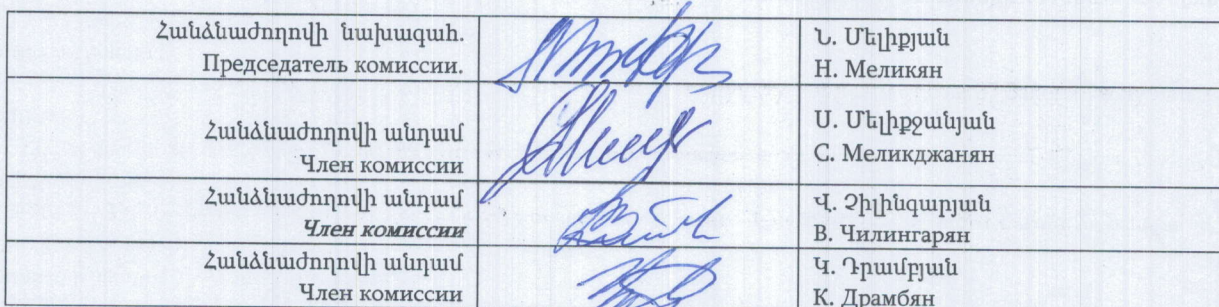 Հանձնաժողովի նախագահ.
Председатель комиссии.
Ն. Մելիքյան
Н. Меликян
Հանձնաժողովի անդամ
Член комиссии
Ս. Մելիքջանյան
С. Меликджанян
Հանձնաժողովի անդամ
Член комиссии
Վ. Չիլինգարյան
В. Чилингарян
Հանձնաժողովի անդամ
Член комиссии
Կ. Դրամբյան
К. Драмбян